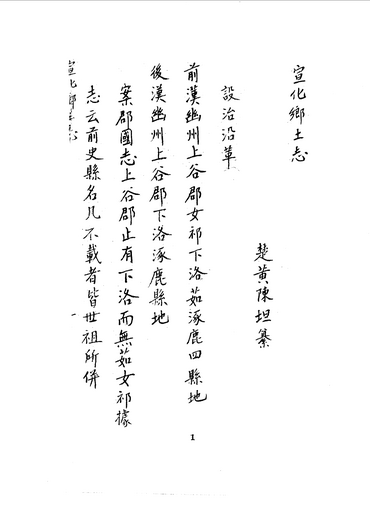 宣化鄉土志
楚黃陳坦纂
設治沿革
前漢幽州上谷郡女祁下洛茹涿鹿四縣地
後漢幽州上谷郡下洛涿鹿縣地
案郡國志上谷郡止有下洛而無茹女祁據
志云前史縣名凡不載者皆世祖所併
宣化鄉土志
一
1